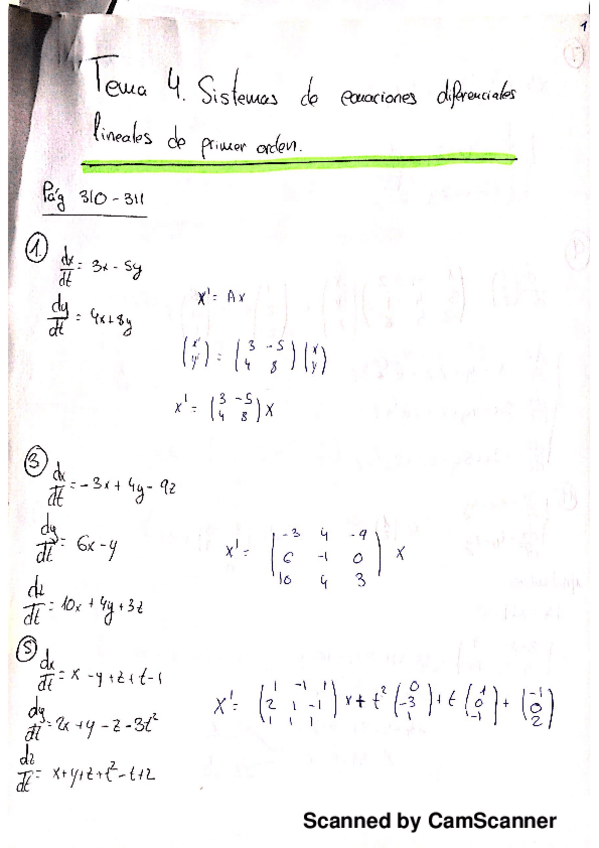 1
Tema 4. Sistemas de ecuaciones diferenciales
lineales de primer orden.
Pág 310-311
1. dx/dt = 3x - 5y
dy/dt = 4x + 8y
X' = Ax
(x' y') = (3 -5 / 4 8) (x y)
x' = (3 -5 / 4 8) X
3 dx/dt = -3x + 4y - 9z
dy/dt = 6x - y
dz/dt = 10x + 4y + 3z
x' = (-3 4 -9 / 6 -1 0 / 10 4 3) X
5 dx/dt = x - y + z + t - 1
dy/dt = 2x + y - z - 3t²
dz/dt = x + y + z + t² - t + 2
X' = (1 -1 1 / 2 1 -1 / 1 1 1) x + t² (0 / -3 / 1) + t (1 / 0 / -1) + (-1 / 0 / 2)
Scanned by CamScanner